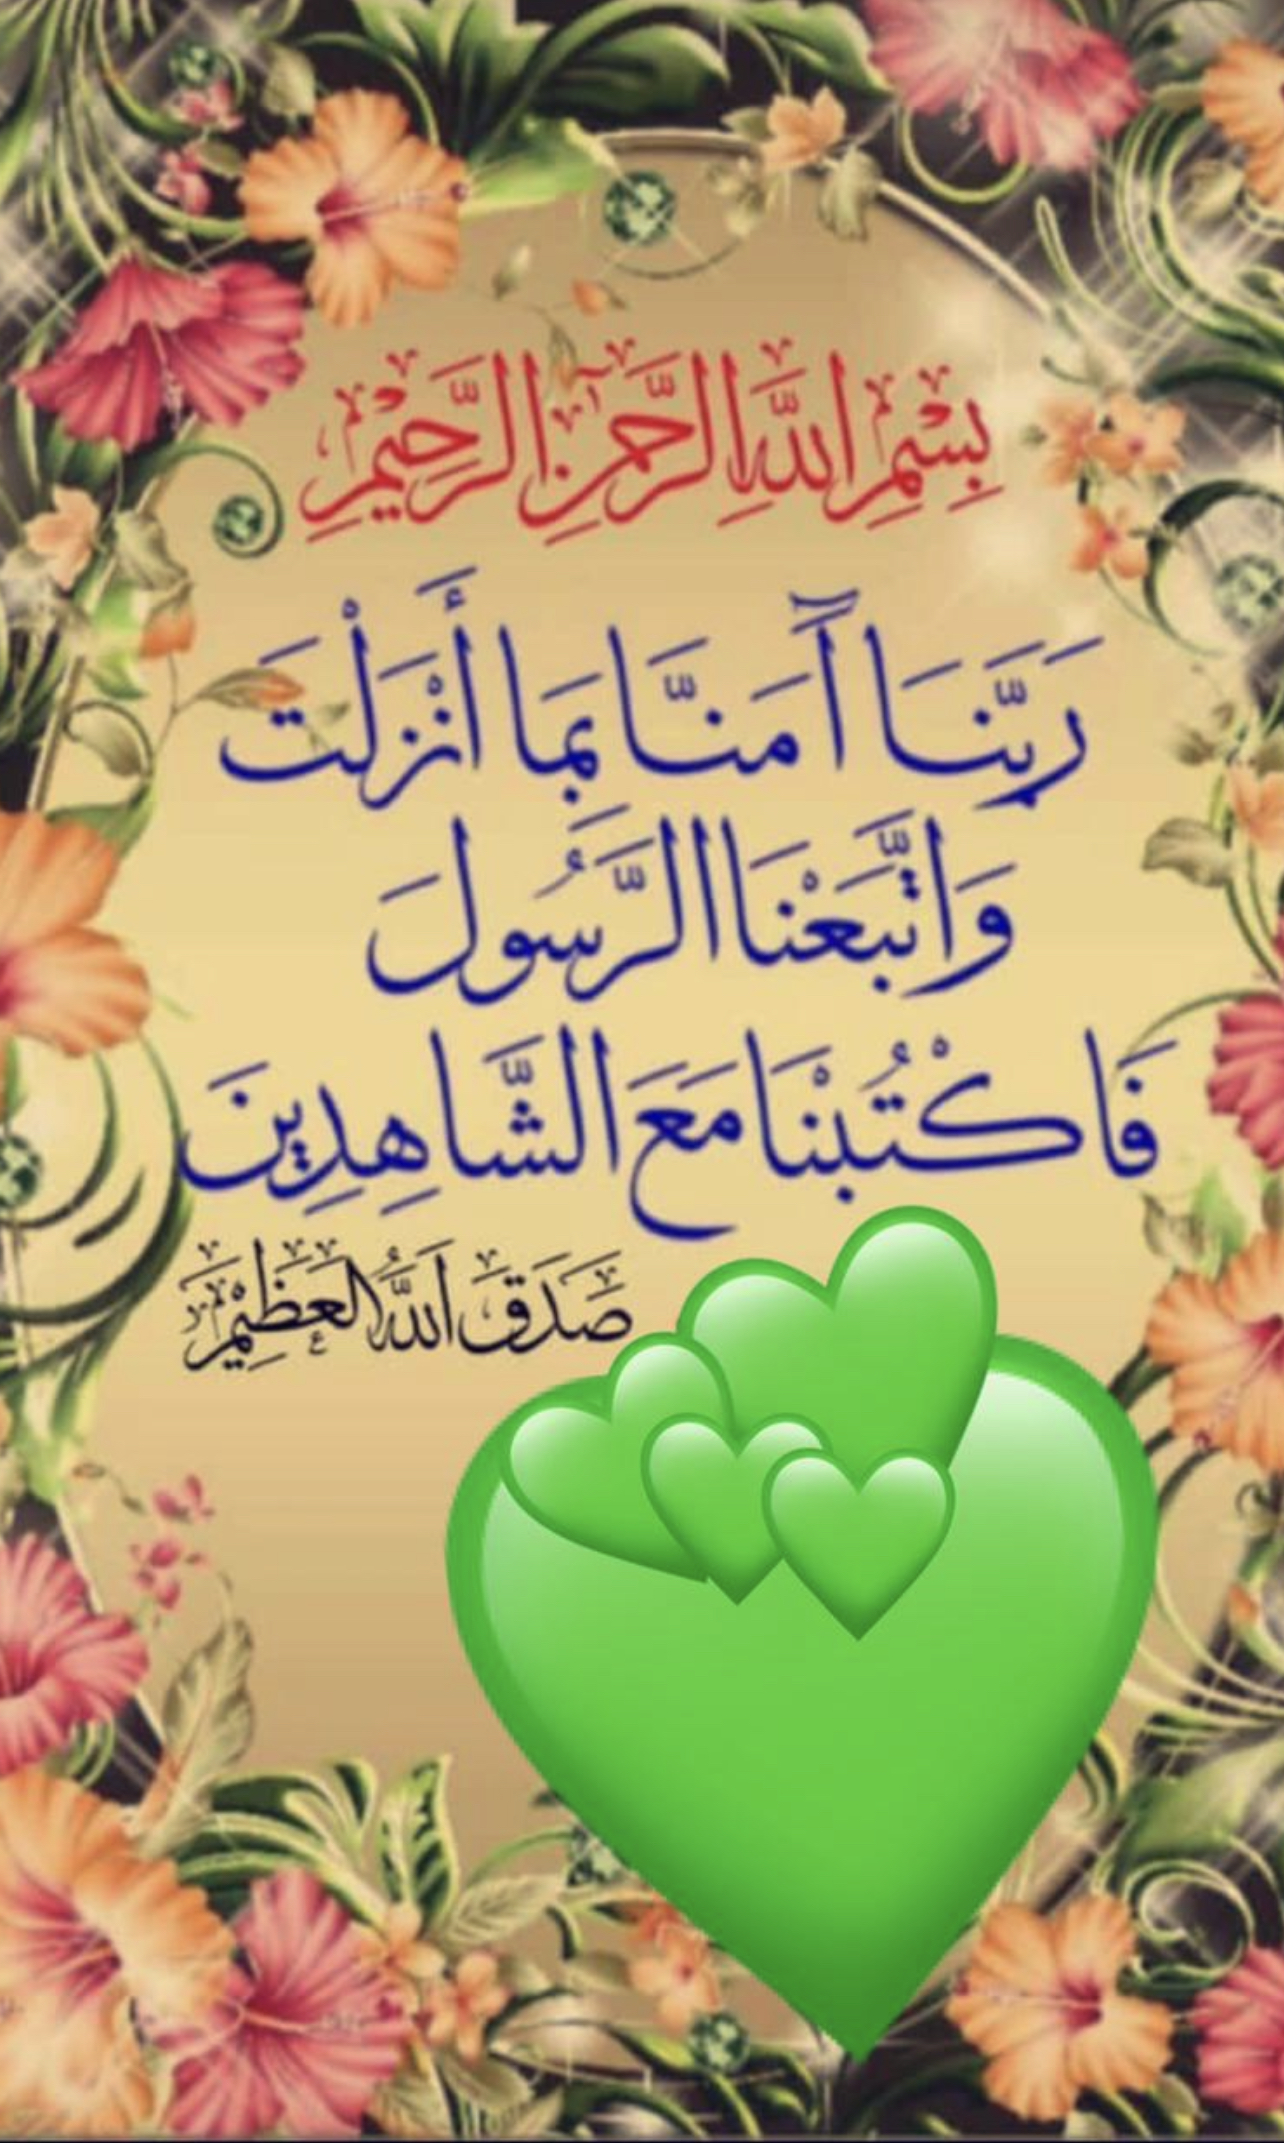 بِسْمِ اللَّهِ الرَّحْمَٰنِ الرَّحِيمِ
رَبَّنَا آَمَنَّا بِمَا أَنْزَلْتَ
وَاتَّبَعْنَا الرَّسُولَ
فَاكْتُبْنَا مَعَ الشَّاهِدِينَ
صَدَقَ اللَّهُ الْعَظِيْمُ